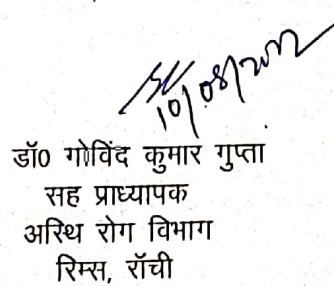 10/08/2012
डॉ0 गोविंद कुमार गुप्ता
सह प्राध्यापक
अस्थि रोग विभाग
रिम्स, राँची